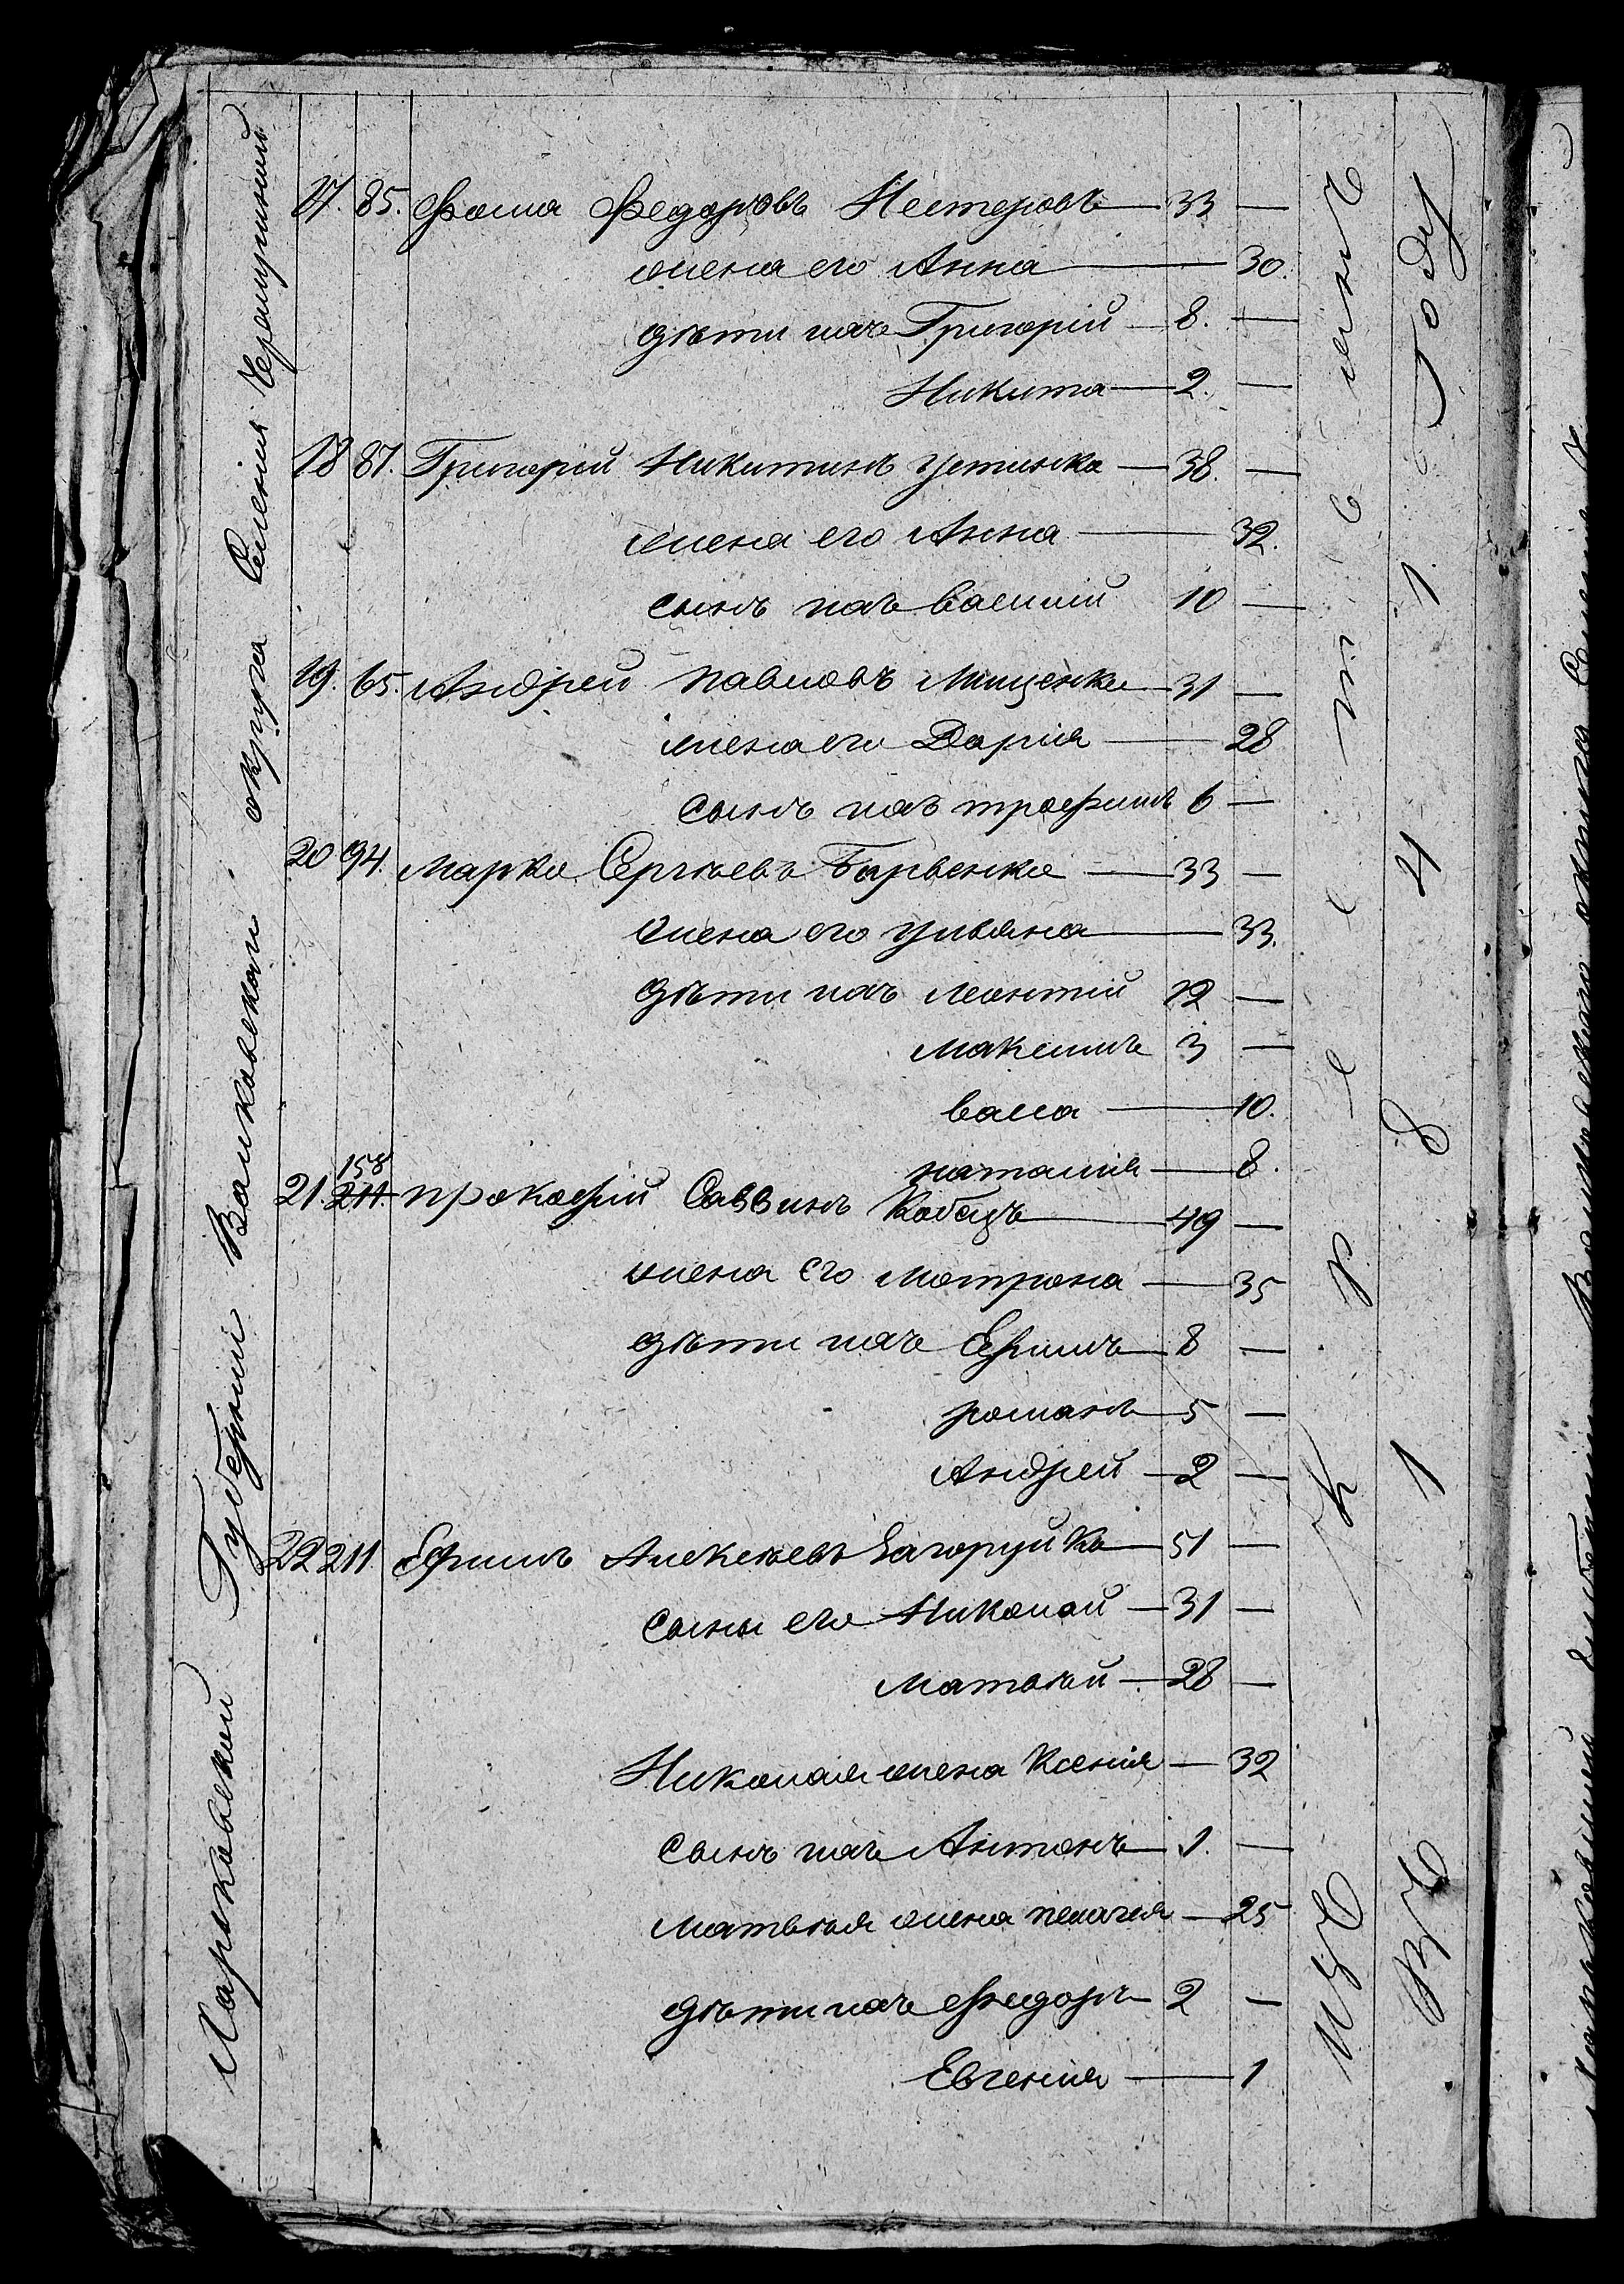 Харьковской Губерніи Валковской округа Селенія Черемушной
17. 85. Фома Федоровъ Нестеровъ — 33 —
жена его Анна — 30.
дѣти ихъ Григорій — 8. —
Никита — 2. —
18 87. Григорій Никитинъ Устинко — 38. —
жена его Анна — 32.
сынъ ихъ Василій 10 —
19. 65. Андрей Павловъ Мищенко — 31 —
жена его Дарія — 28
сынъ ихъ Трофимъ 6 —
20 94. Марко Сергѣевъ Барвенко — 33 —
жена его Ульяна — 33.
дѣти ихъ Леонтій 12 —
Максимъ 3 —
Васса — 10.
Наталія — 8.
158
21. 211. Прокофій Саввинъ Кобецъ — 49 —
жена его Мотрона — 35
дѣти ихъ Ефимъ — 8 —
Романъ — 5 —
Андрей — 2 —
22 211. Ефимъ Алексѣевъ Загоруйко — 51 —
Сыны его Николай — 31 —
Матвѣй — 28 —
Николая жена Ксенія — 32
сынъ ихъ Антонъ — 1. —
Матвѣя жена Пелагея — 25
дѣти ихъ Федоръ — 2 —
Евгенія — 1
Изъ Крестьянъ
Въ 1841 Году